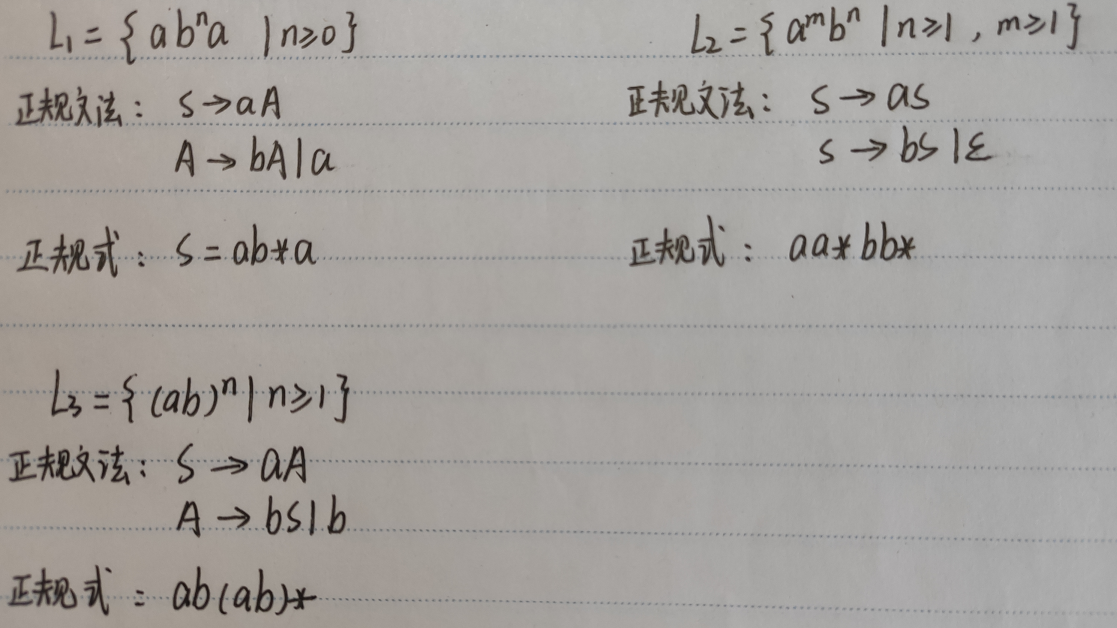 L₁ = { abⁿa | n≥0 }
正规文法: S→aA
A→bA|a
正规式: S=ab*a
L₂ = { aᵐbⁿ | n≥1, m≥1 }
正规文法: S→aS
S→bS|ε
正规式: aa*bb*
L₃ = { (ab)ⁿ | n≥1 }
正规文法: S→aA
A→bS|b
正规式: ab(ab)*